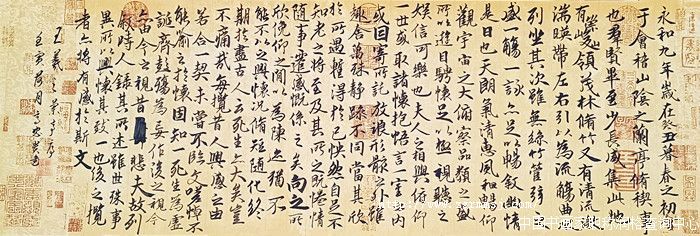 永和九年歲在癸丑暮春之初
于會稽山陰之蘭亭脩稧事
也羣賢畢至少長咸集此地
有崇山峻領茂林脩竹又有清流激
湍暎帶左右引以為流觴曲水
列坐其次雖無絲竹管弦之
盛一觴一詠亦足以暢敘幽情
是日也天朗氣清惠風和暢仰
觀宇宙之大俯察品類之盛
所以遊目騁懷足以極視聽之
娛信可樂也夫人之相與俯仰
一世或取諸懷抱悟言一室之內
或因寄所託放浪形骸之外雖
趣舍萬殊靜躁不同當其欣
於所遇暫得於己快然自足不
知老之將至及其所之既惓情
隨事遷感慨係之矣向之所
欣俛仰之間以為陳迹猶不
能不以之興懷況脩短隨化終
期於盡古人云死生亦大矣豈
不痛哉每攬昔人興感之由
若合一契未嘗不臨文嗟悼不
能喻之於懷固知一死生為虛
誕齊彭殤為妄作後之視今
亦由今之視昔悲夫故列
敘時人錄其所述雖世殊事
異所以興懷其致一也後之攬
者亦將有感於斯文
王羲之蘭亭序